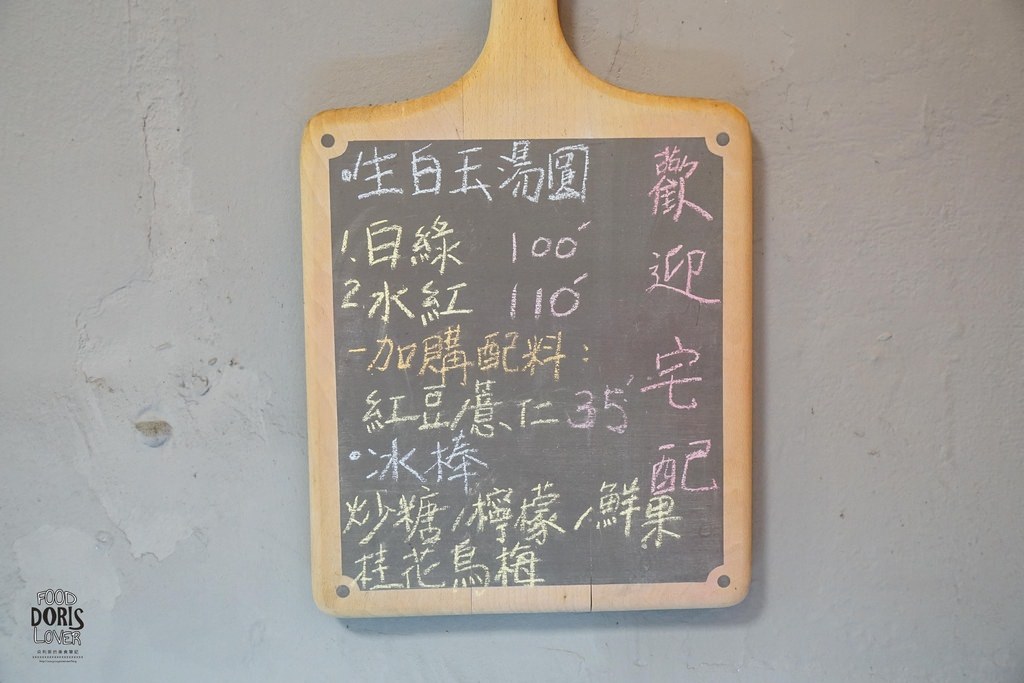 •生白玉湯圓
1.白綠 100
2.水紅 110
-加購配料:
紅豆/薏仁35
•冰棒
炒糖/檸檬/鮮果
桂花烏梅
歡迎宅配
FOOD
DORIS
LOVER